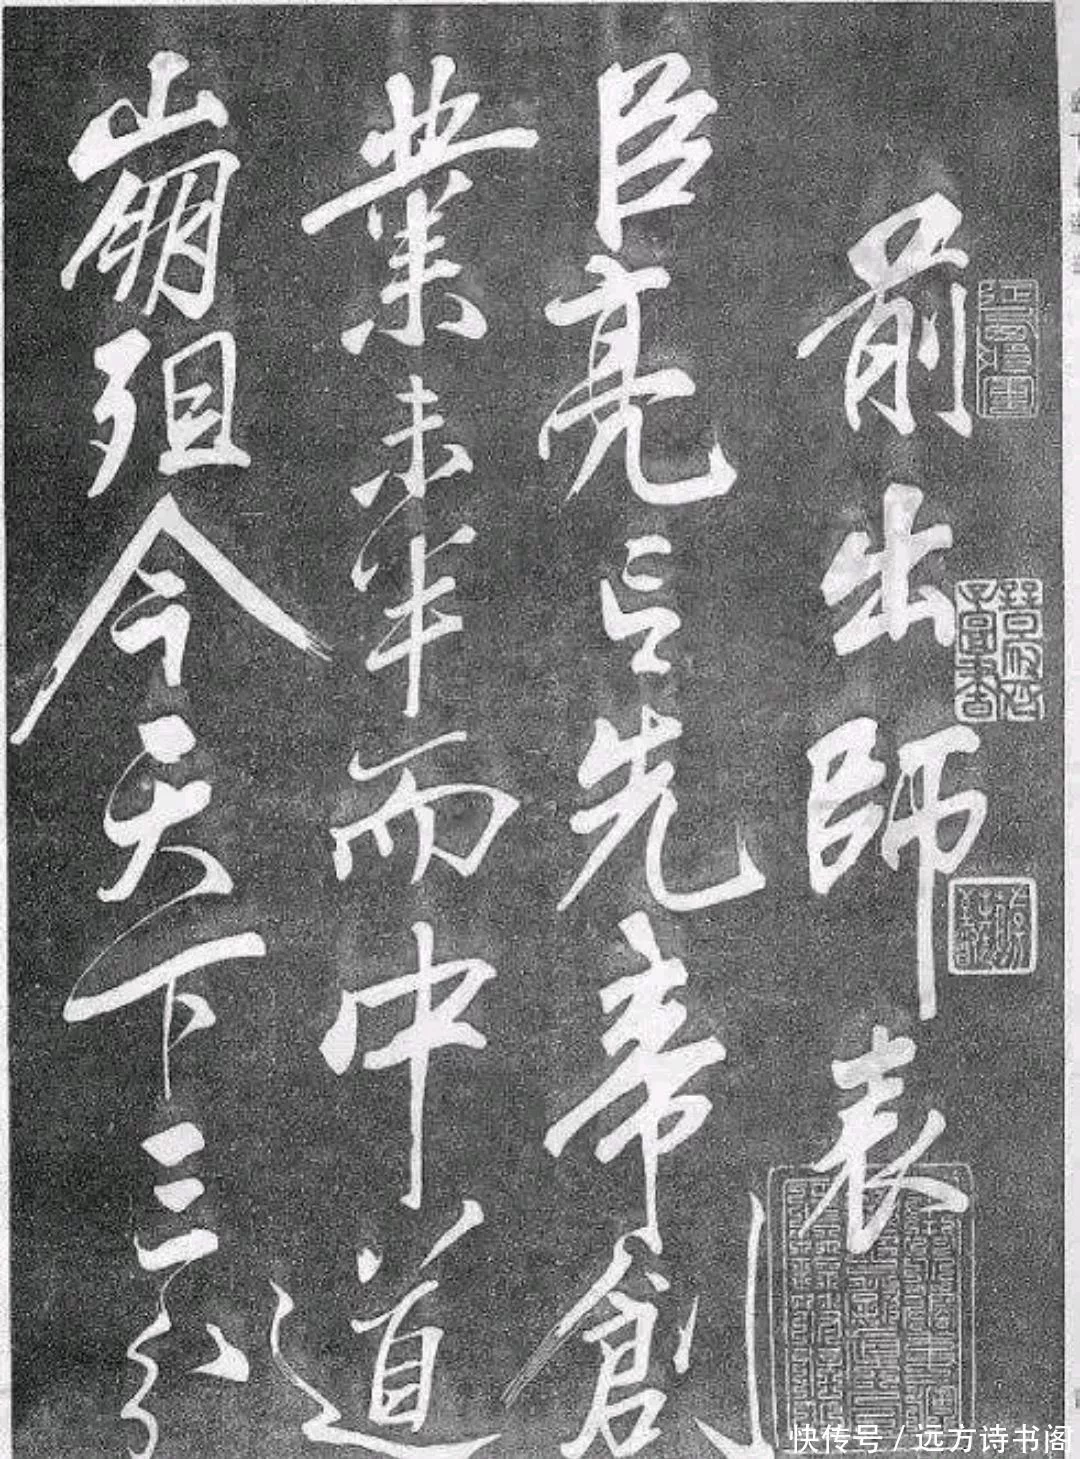 前出師表
臣亮言先帝創
業未半而中道
崩殂今天下三分
快传号 / 远方诗书阁